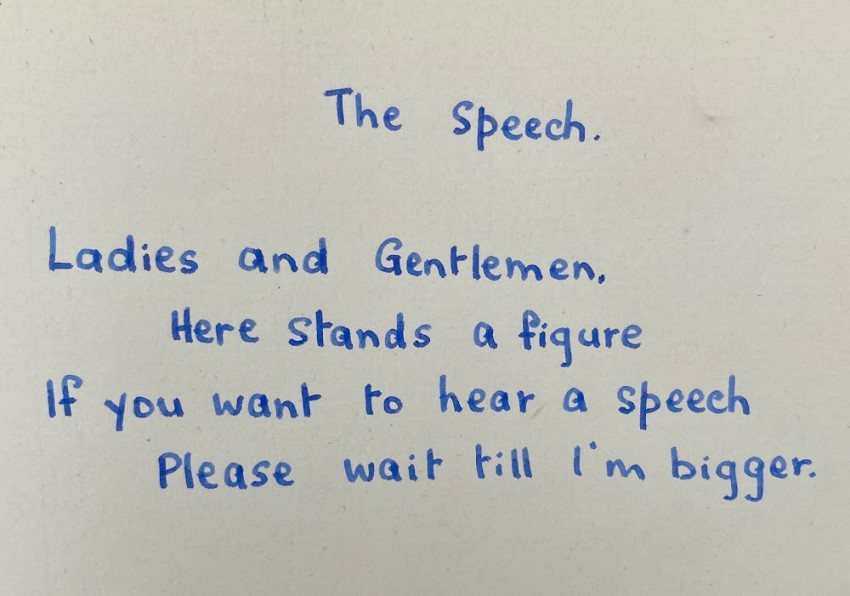 The Speech.
Ladies and Gentlemen,
Here stands a figure
If you want to hear a speech
Please wait till I'm bigger.